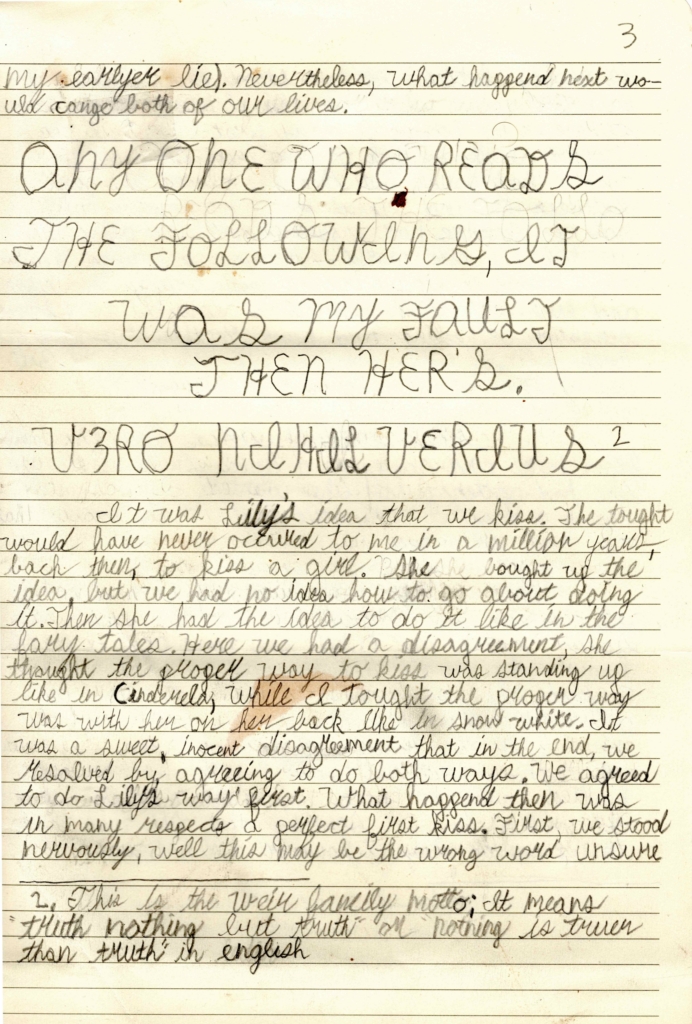 3
my earlyer lie). Nevertheless, what happend next wo-
uld cange both of our lives.
ANY ONE WHO READS
THE FOLLOWING, IT
WAS MY FAULT
THEN HER'S.
V3RO NIHIL VERIUS 2
It was Lilly's idea that we kiss. The tought
would have never occured to me in a million years,
back then, to kiss a girl. She bought up the
idea, but we had no idea how to go about doing
it. Then she had the idea to do it like in the
fary tales. Here we had a disagreement, she
thought the proper way to kiss was standing up
like in Cinderela, while I tought the proper way
was with her on her back like in snow white. It
was a sweet, inocent disagreement that in the end, we
resolved by agreeing to do both ways. We agreed
to do Lily's way first. What happend then was
in many respects a perfect first kiss. First, we stood
nervously, well this may be the wrong word unsure
2. This is the weir family motto; It means
"truth nothing but truth" or "nothing is truer
than truth" in english.